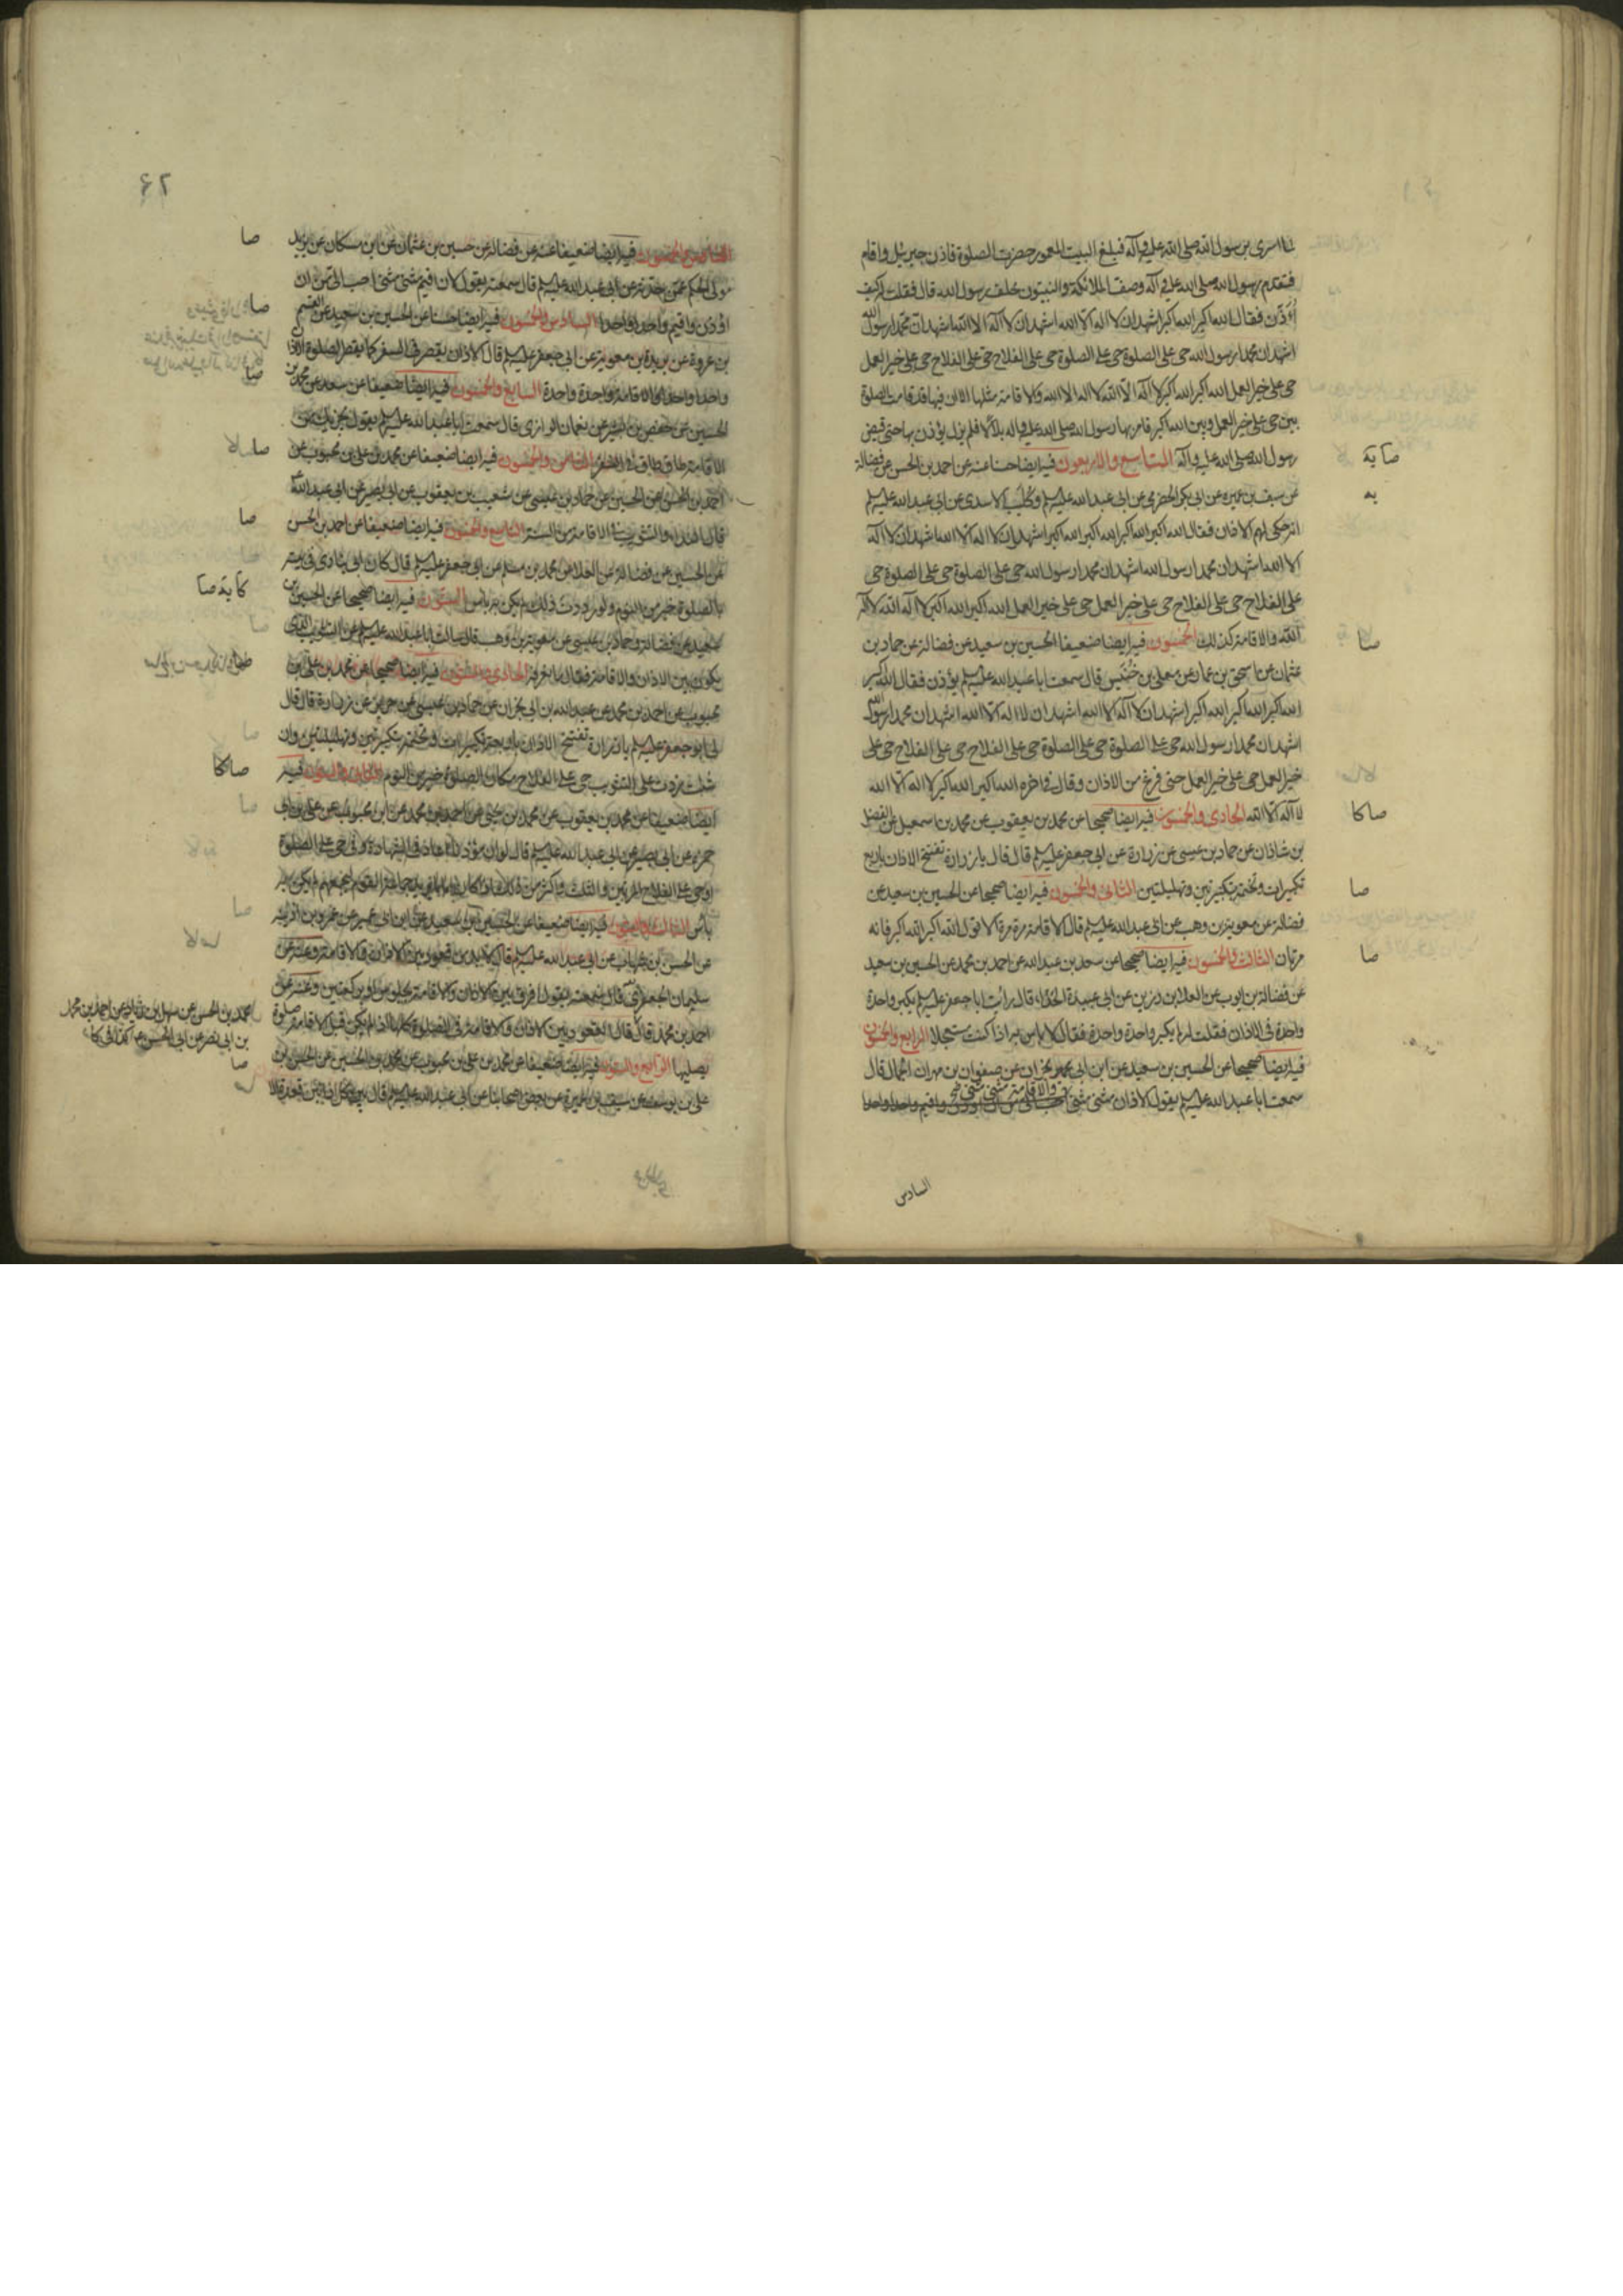 لما اسرى برسول الله صلى الله عليه وآله فبلغ البيت المعمور حضرت الصلوة فاذن جبرئيل واقام
فتقدم رسول الله صلى الله عليه وآله وصف الملائكة والنبيون خلف رسول الله قال فقلت له كيف
اذن فقال الله اكبر الله اكبر اشهد ان لا اله الا الله اشهد ان لا اله الا الله اشهد ان محمدا رسول الله
اشهد ان محمدا رسول الله حى على الصلوة حى على الصلوة حى على الفلاح حى على الفلاح حى على خير العمل
حى على خير العمل الله اكبر الله اكبر لا اله الا الله لا اله الا الله والاقامة مثلها الا ان فيها قد قامت الصلوة
بين حى على خير العمل وبين الله اكبر فامر بها رسول الله صلى الله عليه وآله بلالا فلم يزل يؤذن بها حتى قبض
رسول الله صلى الله عليه وآله التاسع والاربعون فيه ايضا حسنا عنه عن احمد بن الحسن عن فضالة
صا يه
عن سيف بن عميرة عن ابى بكر الحضرمى عن ابى عبد الله عليه السلم وكليب الاسدى عن ابى عبد الله عليه السلم
يه
انه حكى لهم الاذان فقال الله اكبر الله اكبر الله اكبر الله اكبر اشهد ان لا اله الا الله اشهد ان لا اله
الا الله اشهد ان محمدا رسول الله اشهد ان محمدا رسول الله حى على الصلوة حى على الصلوة حى
على الفلاح حى على الفلاح حى على خير العمل حى على خير العمل الله اكبر الله اكبر لا اله الا الله لا اله الا
الله والاقامة كذلك الخمسون فيه ايضا ضعيفا الحسين بن سعيد عن فضالة عن حماد بن
صا
عثمان عن اسحق بن عمار عن معلى بن خنيس قال سمعت ابا عبد الله عليه السلم يؤذن فقال الله اكبر
الله اكبر الله اكبر الله اكبر اشهد ان لا اله الا الله اشهد ان لا اله الا الله اشهد ان محمدا رسول الله
اشهد ان محمدا رسول الله حى على الصلوة حى على الصلوة حى على الفلاح حى على الفلاح حى على
خير العمل حى على خير العمل حتى فرغ من الاذان وقال فى اخره الله اكبر الله اكبر لا اله الا الله
لا اله الا الله الحادى والخمسون فيه ايضا صحيحا عن محمد بن يعقوب عن محمد بن اسمعيل عن الفضل
صا كا
بن شاذان عن حماد بن عيسى عن زرارة عن ابى جعفر عليه السلم قال قال يا زرارة تفتتح الاذان باربع
تكبيرات وتختمه بتكبيرتين وتهليلتين الثانى والخمسون فيه ايضا صحيحا عن الحسين بن سعيد عن
صا
فضالة عن معوية بن وهب عن ابى عبد الله عليه السلم قال الاقامة مرة مرة الا قول الله اكبر الله اكبر فانه
مرتان الثالث والخمسون فيه ايضا صحيحا عن سعد بن عبد الله عن احمد بن محمد عن الحسين بن سعيد
صا
عن فضالة بن ايوب عن العلا بن رزين عن ابى عبيدة الحذاء قال رأيت ابا جعفر عليه السلم يكبر واحدة
واحدة فى الاذان فقلت له لم يكبر واحدة واحدة فقال لا باس به اذا كنت مستعجلا الرابع والخمسون
فيه ايضا صحيحا عن الحسين بن سعيد عن ابن ابى نجران عن صفوان بن مهران الجمال قال
سمعت ابا عبد الله عليه السلم يقول الاذان مثنى مثنى والاقامة مثنى مثنى
السادس
٤٦
الخامس والخمسون فيه ايضا ضعيفا عنه عن فضالة عن حسين بن عثمان عن ابن مسكان عن يزيد
صا
مولى الحكم عمن حدثه عن ابى عبد الله عليه السلم قال سمعته يقول لان اقيم مثنى مثنى احب الى من ان
اؤذن واقيم واحدا واحدا السادس والخمسون فيه ايضا حسنا عن الحسين بن سعيد عن القسم
صا
بن عروة عن بريد بن معوية عن ابى جعفر عليه السلم قال الاذان يقصر فى السفر كما يقصر الصلوة الاذان
واحدا واحدا والاقامة واحدة واحدة السابع والخمسون فيه ايضا ضعيفا عن سعد عن محمد بن
صا
الحسين عن جعفر بن بشير عن نعمان الرازى قال سمعت ابا عبد الله عليه السلم يقول يجزيك من
الاقامة طاق طاق فى السفر الثامن والخمسون فيه ايضا ضعيفا عن محمد بن على بن محبوب عن
صا
احمد بن الحسن عن الحسين عن حماد بن عيسى عن شعيب بن يعقوب عن ابى بصير عن ابى عبد الله
قال النداء والتثويب فى الاقامة من السنة التاسع والخمسون فيه ايضا ضعيفا عن احمد بن الحسن
صا
عن الحسين عن فضالة عن العلا عن محمد بن مسلم عن ابى جعفر عليه السلم قال كان ابى ينادى فى بيته
بالصلوة خير من النوم ولو رددت ذلك لم يكن به باس الستون فيه ايضا صحيحا عن الحسين بن
كا يه صا
سعيد عن فضالة وحماد بن عيسى عن معوية بن وهب قال سالت ابا عبد الله عليه السلم عن التثويب الذى
يكون بين الاذان والاقامة فقال ما نعرفه الحادى والستون فيه ايضا صحيحا عن محمد بن على بن
محبوب عن احمد بن محمد عن عبد الله بن ابى نجران عن حماد بن عيسى عن حريز عن زرارة قال قال
لى ابو جعفر عليه السلم يا زرارة تفتتح الاذان باربع تكبيرات وتختمه بتكبيرتين وتهليلتين وان
شئت زدت على التثويب حى على الفلاح مكان الصلوة خير من النوم الثانى والستون فيه
صا كا
ايضا ضعيفا عن محمد بن يعقوب عن محمد بن يحيى عن احمد بن محمد عن ابن محبوب عن على بن ابى
حمزة عن ابى بصير عن ابى عبد الله عليه السلم قال لو ان مؤذنا اعاد فى الشهادة وفى حى على الصلوة
او حى على الفلاح المرتين والثلث واكثر من ذلك اذا كان اماما يريد جماعة القوم ليجمعهم لم يكن به
باس الثالث والستون فيه ايضا ضعيفا عن الحسين بن سعيد عن ابن ابى عمير عن عمر بن اذينه
عن الحسن بن شهاب عن ابى عبد الله عليه السلم قال لا بد من قعود بين الاذان والاقامة وعنه عن
سليمان الجعفرى قال سمعته يقول افرق بين الاذان والاقامة بجلوس او بركعتين وعنه عن
احمد بن محمد قال قال القعود بين الاذان والاقامة فى الصلوة كلها اذا لم يكن قبل الاقامة صلوة
محمد بن الحسن عن سهل بن زياد عن احمد بن محمد
بن ابى نصر عن ابى الحسن ع كذا فى كا
يصليها الرابع والستون فيه ايضا ضعيفا عن محمد بن على بن محبوب عن محمد بن الحسين عن الحسن بن
صا
على بن يوسف عن سيف بن عميرة عن بعض اصحابنا عن ابى عبد الله عليه السلم قال بين كل اذانين قعدة الا